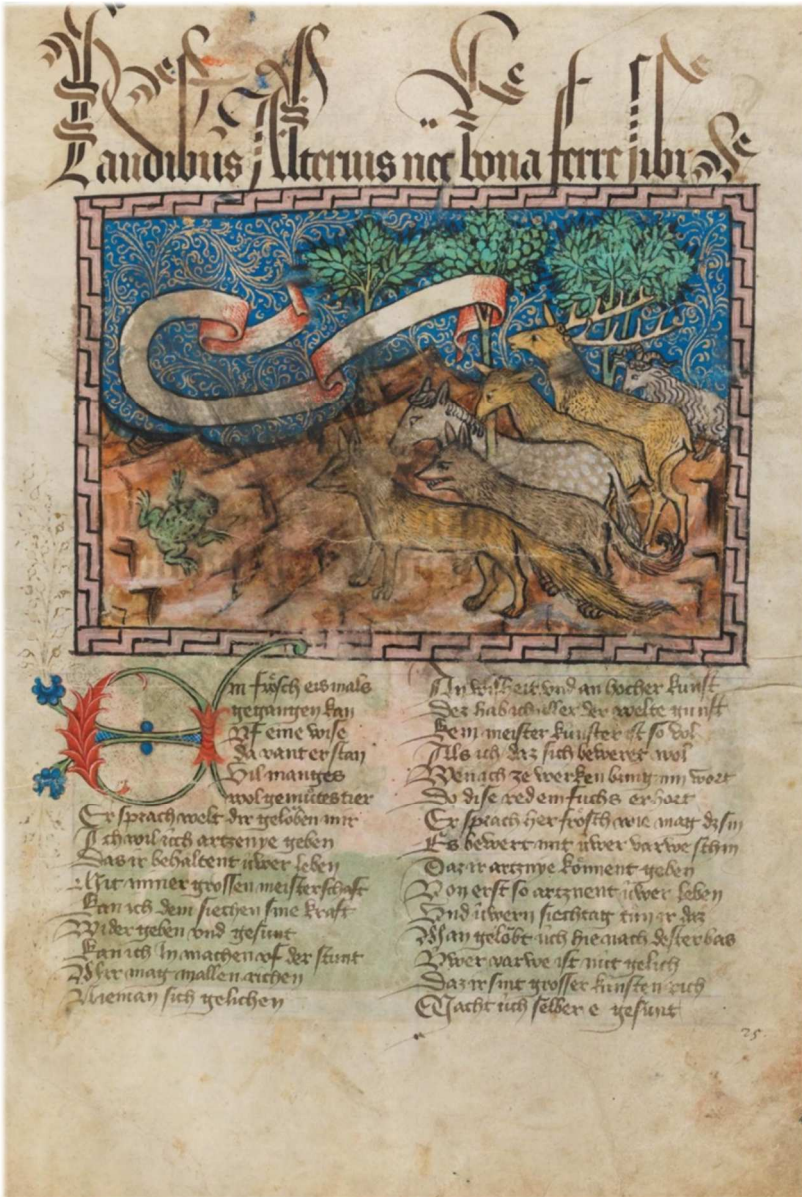 Laudibus Alterius nec bona ferre sibi
Ein frösch ersmals
gegangen kan
Vf eine wise
da vant er stan
Vil manges
wol gemütes tier
Er sprach welt dir gelöben mir
Ich wil üch artzenye geben
Das ir behaltent üwer leben
Mit miner grossen meisterschaft
Kan ich dem siechen sine kraft
Wider geben vnd gesunt
Kan ich In machen vf der stunt
Mir mag mallen richen
Nieman sich gelichen
An wisheit vnd an hocher kunst
Dez hab ich uber der welte gunst
Kein meister kunster ist so vol
Als ich daz sich beweret wol
ze werken bring min wort
Do dise red ein fuchs erhort
Er sprach her frosch wie mag dz sin
Es bewert nit üwer varwe schin
Daz ir artznye könnent geben
Von erst so artznent üwer leben
Vnd üwern siechtag tun ir daz
Man gelöbt üch hie nach dester bas
Vwer varwe ist nit gelich
Daz ir sint grosser künsten rich
Macht üch selber e gesunt
25.